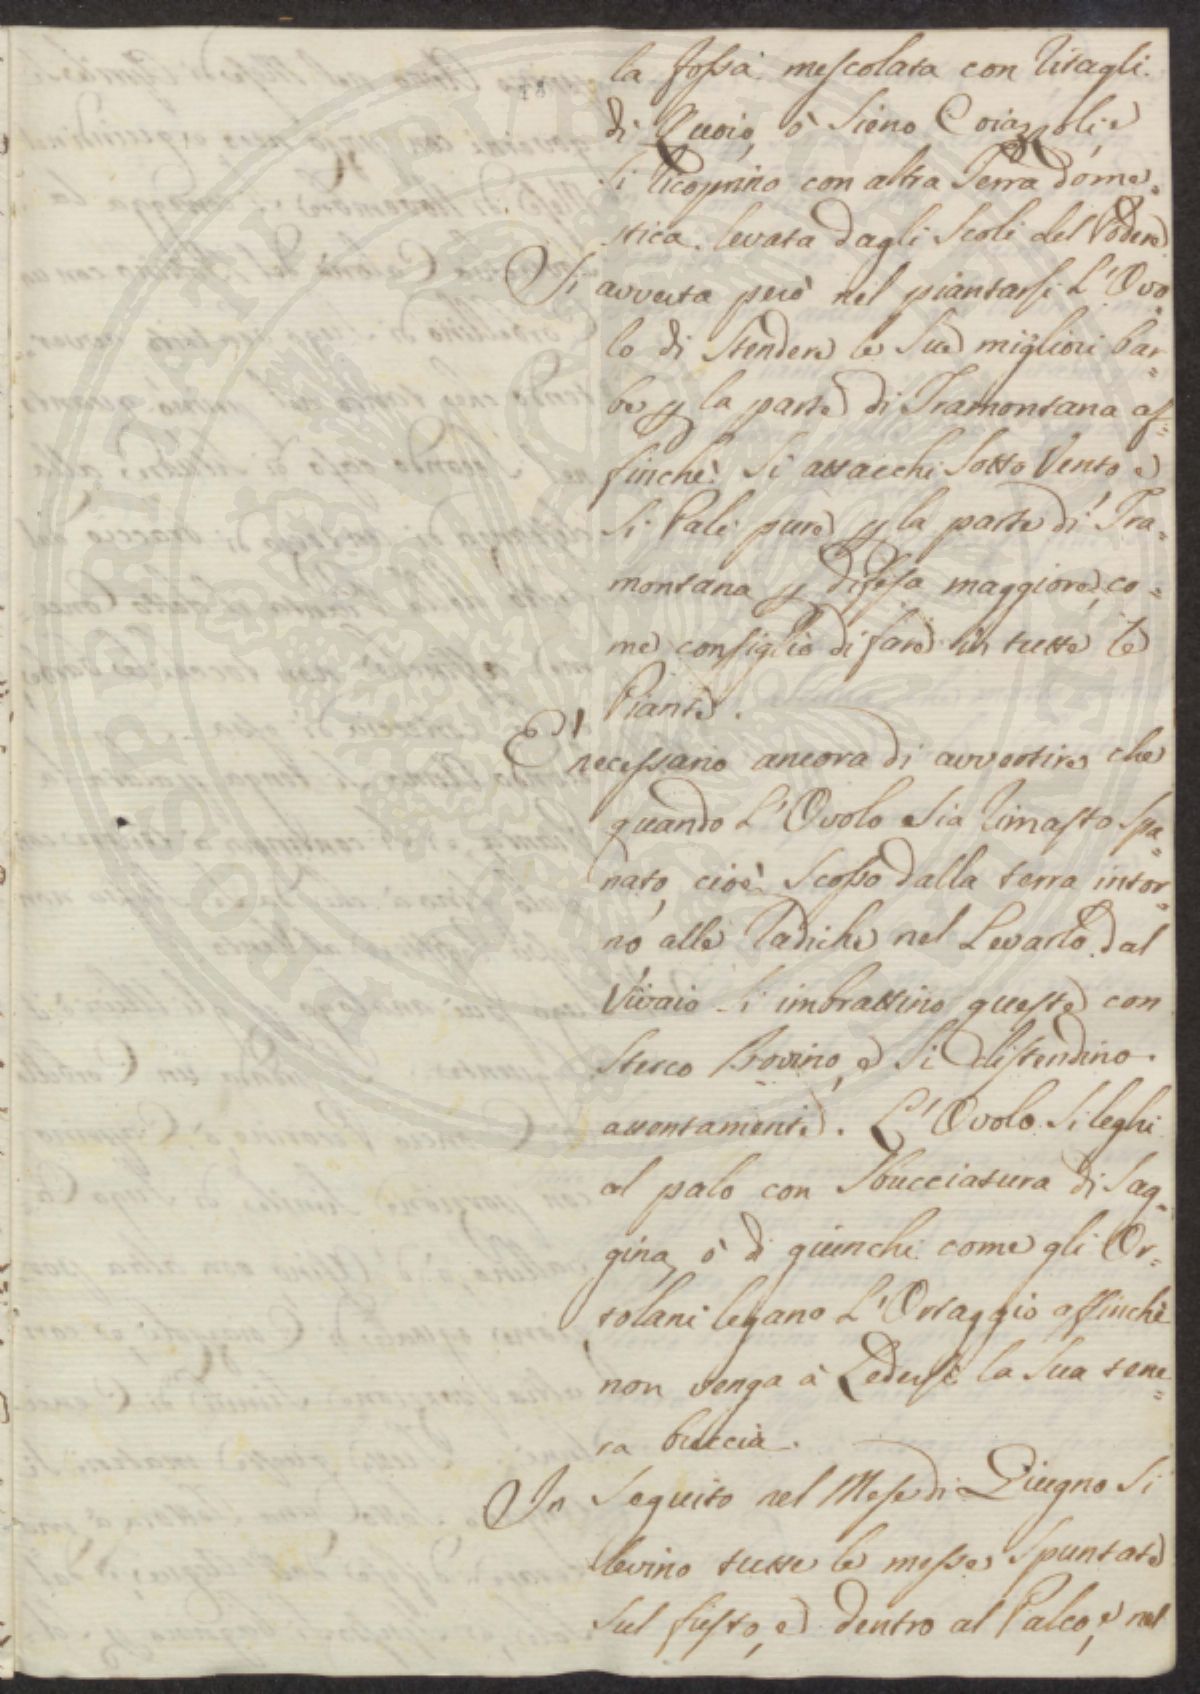 la fossa mescolata con Ritagli
di Quoio, ò Sieno Coiazzoli, e
Si Ricoprino con altra Terra dome=
stica levata dagli Scoli del Podere
Si avverta però nel piantarsi L'Ovo=
lo di Stendere le Sue migliori bar=
be p la parte di Tramontana af=
finchè Si attacchi Sotto Vento e
Si Pali pure p la parte di Tra=
montana p difesa maggiore, co=
me consiglio di fare in tutte le
Piante.
E' necessario ancora di avvertire che
quando L'Ovolo Sia Rimasto Spa=
nato, cioè Scosso dalla terra intor=
no alle Radiche nel Levarlo dal
Vivaio Si imbrattino queste con
Sterco Bovino, e Si distendino
attentamente. L'Ovolo Si leghi
al palo con Sbucciatura di Sag=
gina, ò di giunchi come gli Or=
tolani legano L'Ortaggio affinchè
non venga à Ledersi la Sua tene=
ra buccia.
In Seguito nel Mese di Giugno Si
levino tutte le messe Spuntate
Sul fusto, e dentro al Palco, e nel